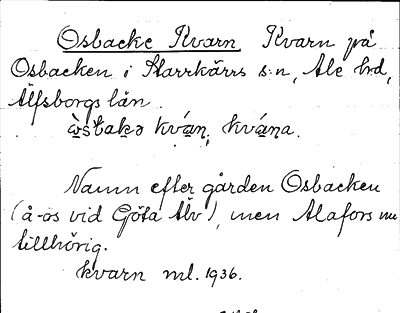 Osbacke Kvarn Kvarn på
Osbacken i Starrkärrs s:n, Ale hrd,
Älfsborgs län.
kván, kvána.
Namn efter gården Osbacken
(å-os vid Göta Älv), men Alafors nu
tillhörig.
kvarn ml. 1936.